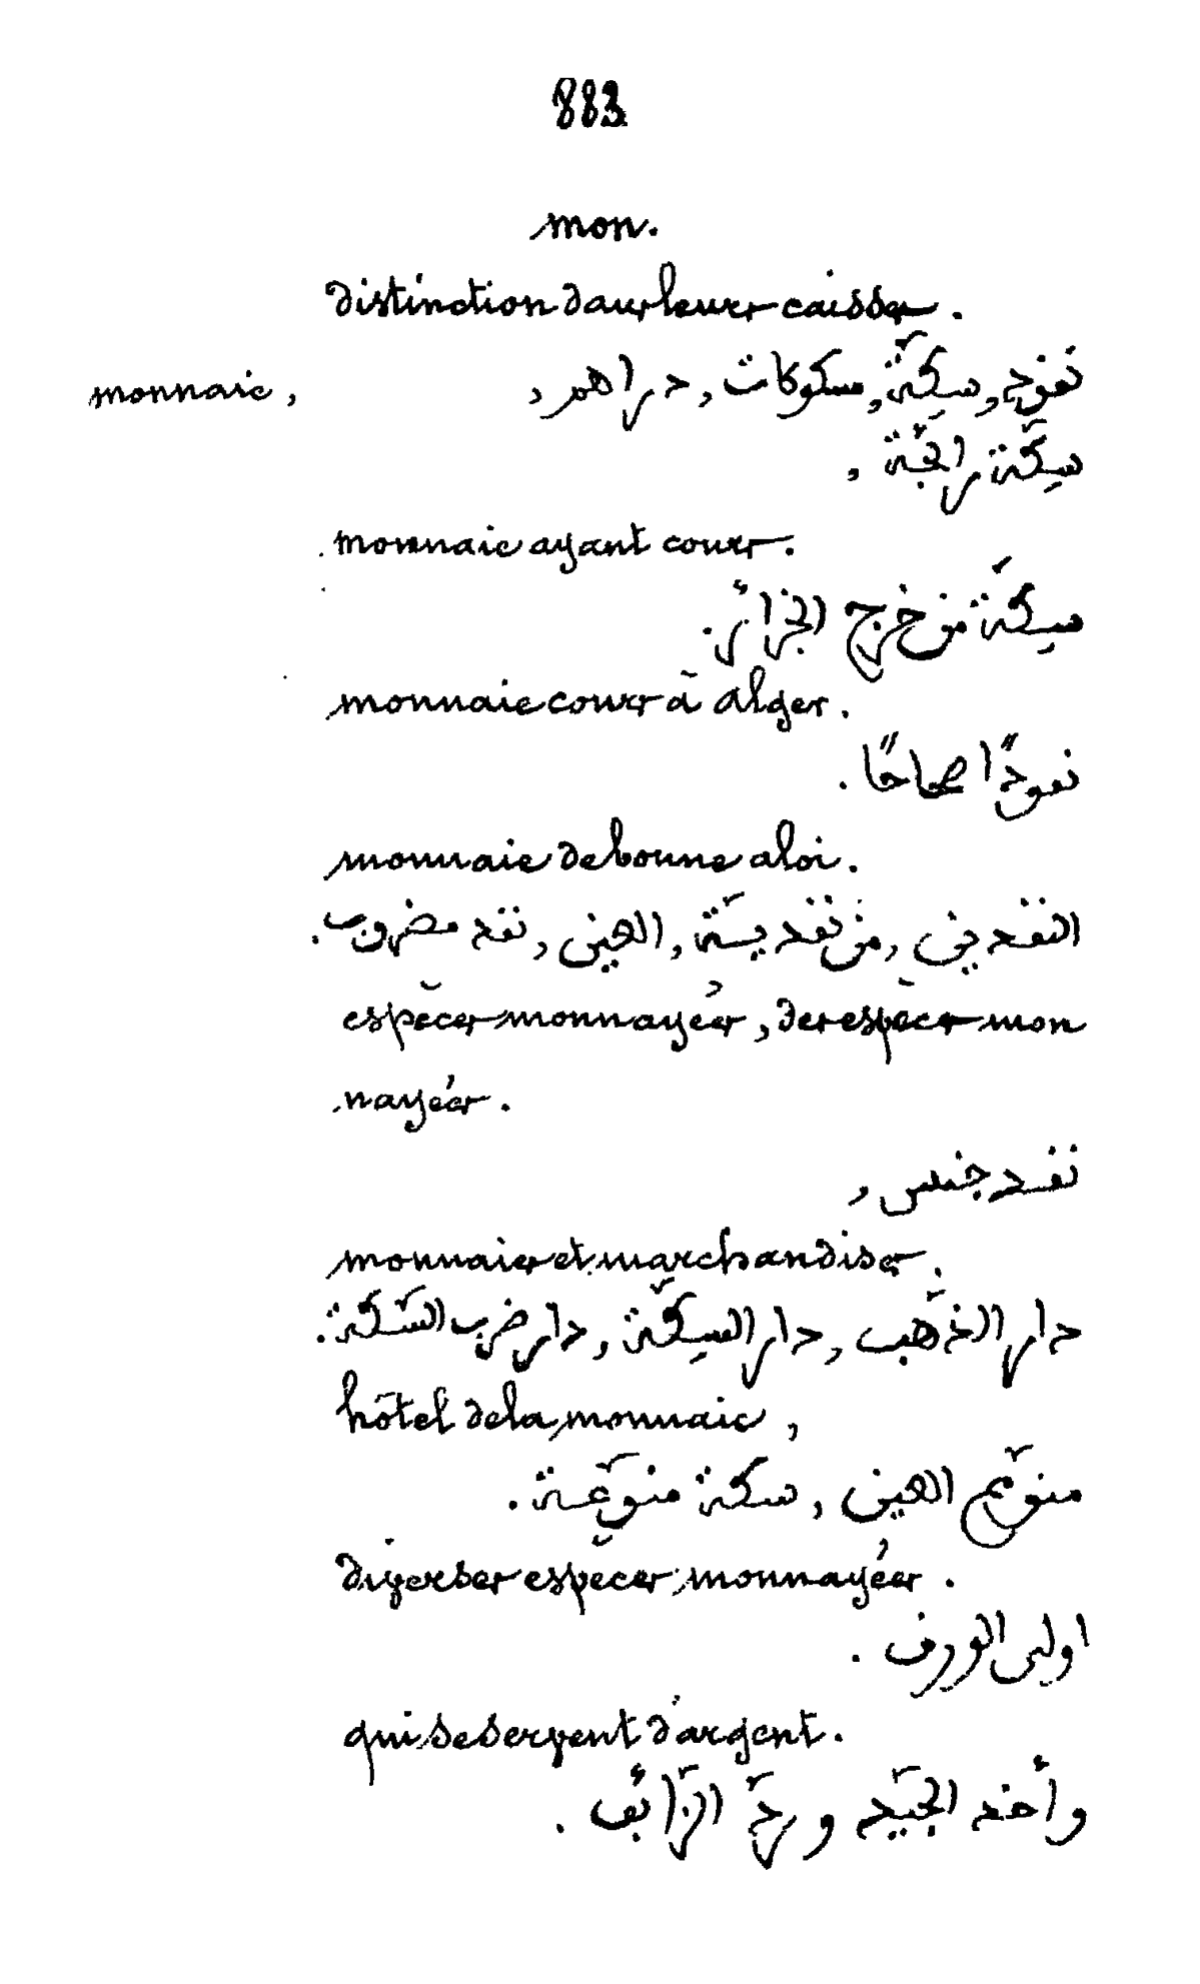 883
mon.
distinction dans leurs caisses.
monnaie, نقود, سكّة, مسكوكات, دراهم,
سكّة رائجة,
monnaie ayant cours.
سكّة من خرج الجزائر.
monnaie cours à alger.
نقودًا صحاحًا.
monnaie de bonne aloi.
النقدين, من نقديّة, العين, نقد مضروب.
espèces monnayées, des espèces mon
nayées.
نقد جنس,
monnaies et marchandises.
دار الذّهب, دار السكّة, دار ضرب السّكّة.
hôtel de la monnaie,
العين, سكة منوّعة.
diverses espèces monnayées.
اولى الورق.
qui se servent d'argent.
وأخذ الجيّد وردّ الزّائف.